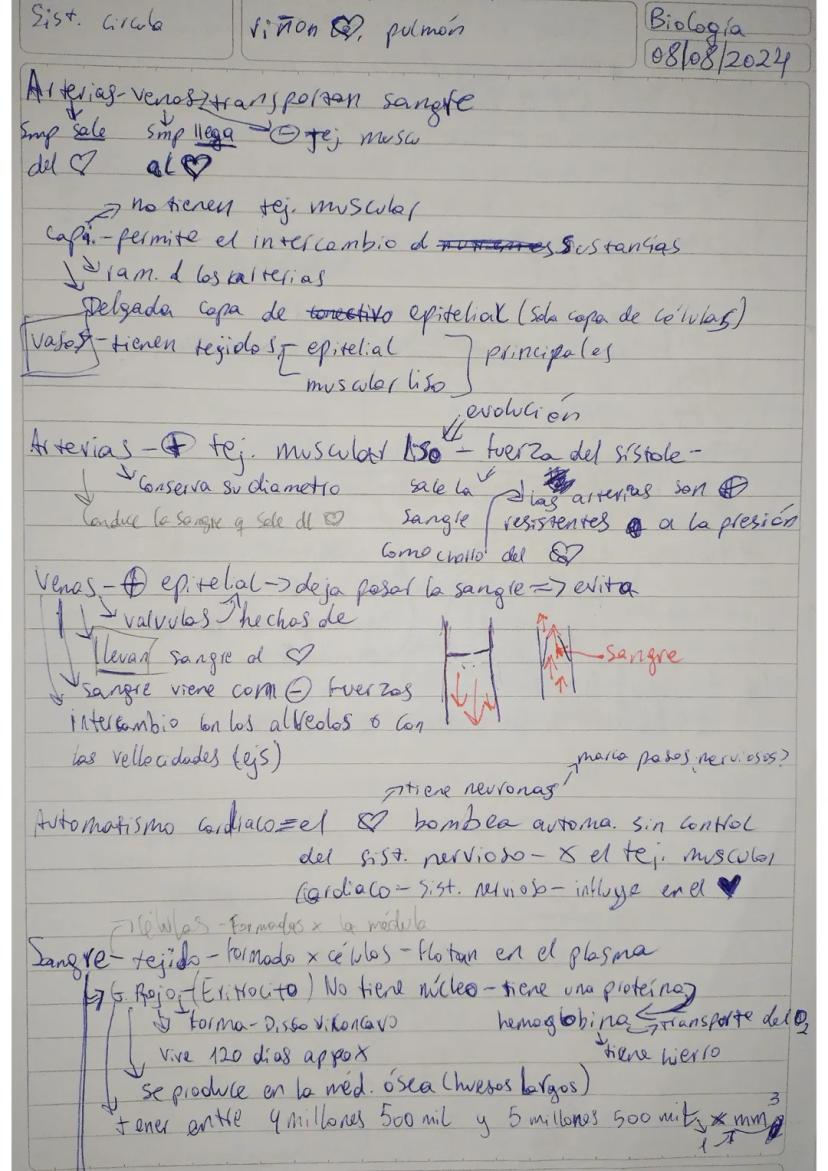 Sist. Circula
riñon ♡, pulmón
Biología
08/08/2024
Arterias - venas → transportan sangre
Smp sale smp llega → ⊖ tej muscu
del ♡ al ♡
→ no tienen tej. muscular
capi. - permite el intercambio d sustancias
→ ram. d las arterias
Delgada capa de epitelial (sola capa de células)
Vasos - tienen tejidos epitelial
muscular liso
principales
evolución
Arterias - ⊕ tej. muscular liso - fuerza del sístole -
Conserva su diametro
Conduce la sangre q sale dl ♡
sale la
sangre
como chorro del ♡
las arterias son ⊕
resistentes a la presión
Venas - ⊕ epitelial → deja pasar la sangre => evita
→ valvulas → hechos de
llevan sangre al ♡
sangre
sangre viene com ⊖ fuerzas
intercambio con los alveolos o con
las vellocidades (ejs)
marca pasos nerviosos?
→ tiene neuronas
Automatismo cardiaco = el ♡ bombea automa. sin control
del sist. nervioso - x el tej. muscular
cardiaco - sist. nervioso - influye en el ♥
→ células - Formadas x la médula
Sangre - tejido - formado x células - flotan en el plasma
→ G. Rojo - (Eritrocito) No tiene núcleo - tiene una proteína
→ forma - Disco vikoncavo
hemoglobina → transporte del O₂
tiene hierro
vive 120 dias appox
se produce en la méd. ósea (huesos largos)
tener entre 4 millones 500 mil y 5 millones 500 mil x mm³
1